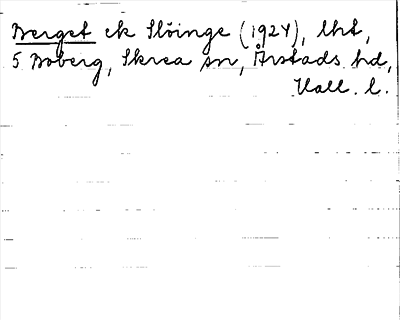 Berget ek Slöinge (1924), lht,
5 Boberg, Skrea sn, Årstads hd,
Hall. l.